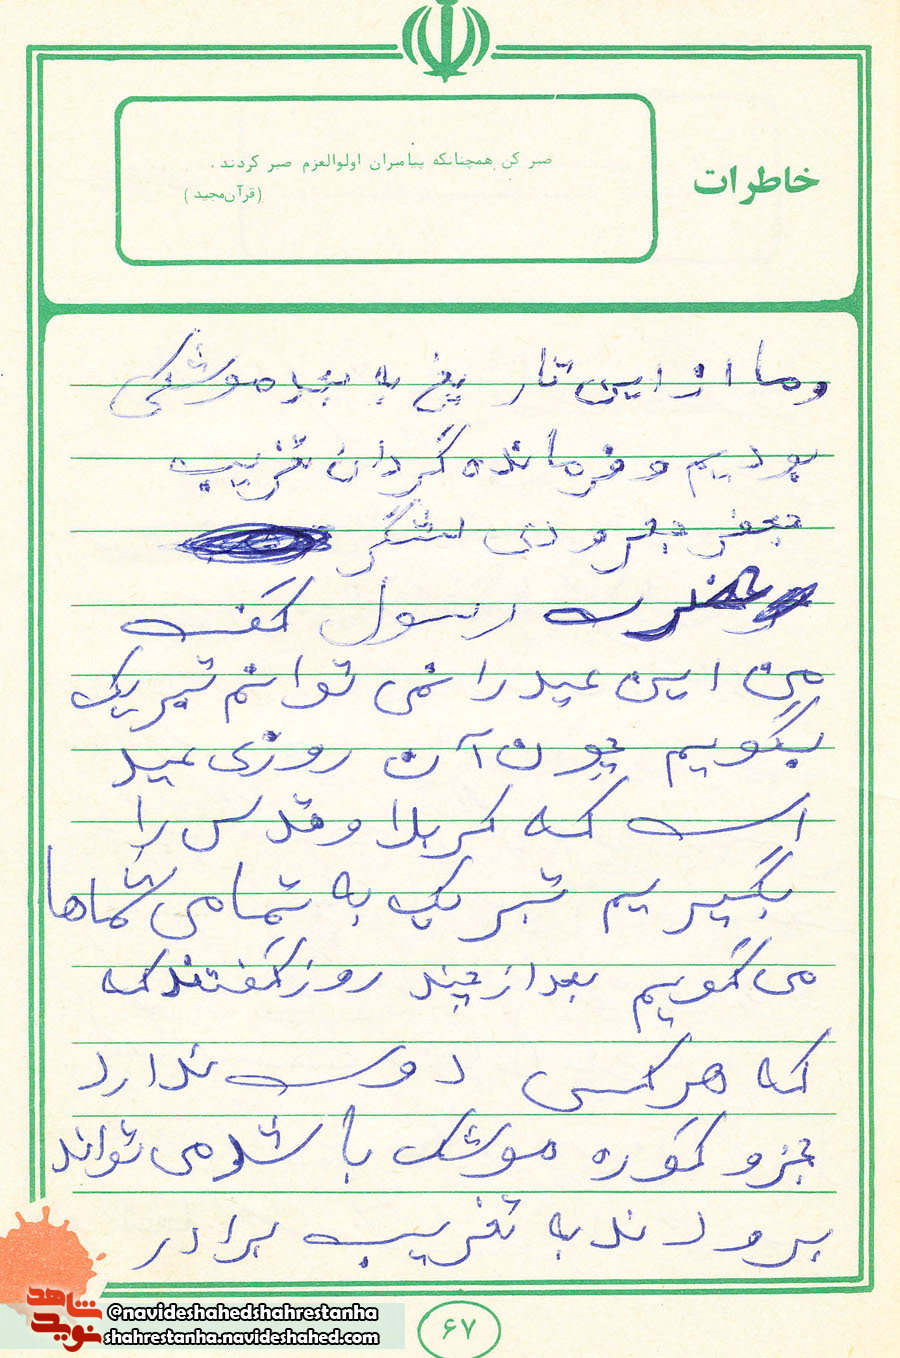 خاطرات
صبر کن همچنانکه پیامبران اولوالعزم صبر کردند .
(قرآن مجید)
وما از این تاریخ به بعد موشکی
بودیم و فرمانده گردان تخریب
جعفر جهرودی لشگر
حضرت رسول گفت
من این عید را نمی توانم تبریک
بگویم چون آن روزی عید
است که کربلا و قدس را
بگیریم تبریک به تمامی شماها
می گویم بعد از چند روز گفتند که
که هر کسی دوست ندارد
جزو گوره موشک باشد می تواند
برود ند به تخریب برادر
۶۷
شاهد
نوید
@navideshahedshahrestanha
shahrestanha.navideshahed.com